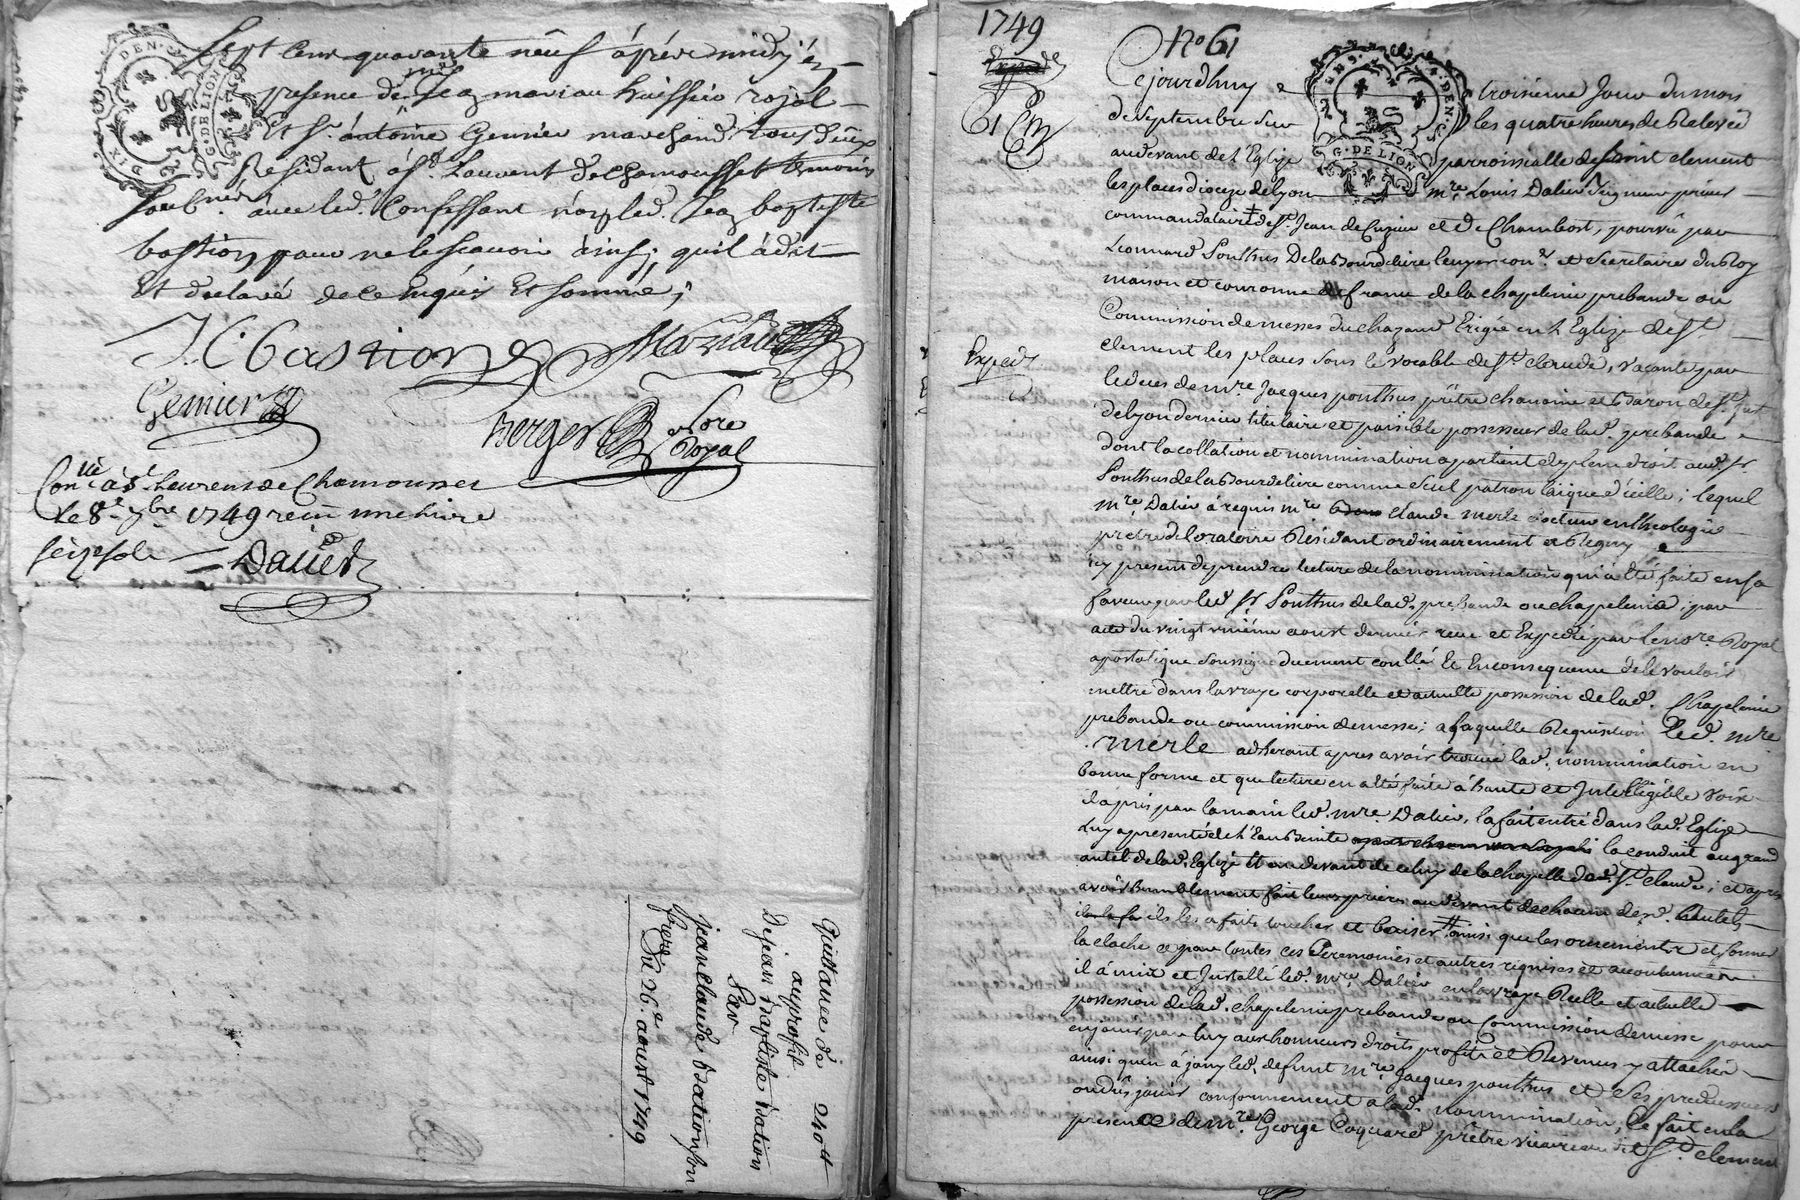 sept cent quarante neuf áprés midy én
presence de me Jean mariau huissier royal
Et sr. ántoine Genier marchand tous deux
Residant á st. Laurent de Chamousset temoins
soubnés ávec led. Confessant nón led. Jean baptiste
bastion pour ne le scavoir áinsi quil á dit
Et declaré de ce Enquis Et sommé ;
J. C. bastion
Mariau
Genier
berger
nore Royal
Conlé á st Laurens de Chamousset
le 8e 7bre 1749 recu une livre
seize sols Daviet
Quittance de 240 lt
au profit
De jean Baptiste Bation
Par
jean claude Bation son
frere
Du 26e aoust 1749
1749
61
Exped.
No 61
Cejourdhuy troisième Jour du mois
de Septembre sur les quatre heures de Relevée
au devant de l'Eglize parroissialle de Saint clement
les places dioceze de Lyon mre. Louis Dalier Seigneur prieur
commandataire de st. Jean de Cuzieu et de Chambost, pourvû par
Leonnard Ponthus De la Bourdeliere Ecuyer con.r et Secretaire du Roy
maison et couronne de france de la chapelenie prebande ou
Commission de messes du chazaud Erigée en l'Eglize de st.
clement les places sous le vocable de st. claude, vacante par
le deces de mre Jacques ponthus prêtre chanoine et Baron de st. just
de lyon dernier titulaire et paisible possesseur de lad. prebande
dont la collation et nommination apartient de plein droit aud. sr
Ponthus de la Bourdeliere comme seul patron laique d'icelle ; lequel
mre Dalier á requis mre claude merle docteur en theologie
pretre de loratoire Résidant ordinairement a Regny
icy present de prendre lecture de la nommination qui a été faite en sa
faveur par led sr Ponthus de lad. prebande ou chapelenie ; par
acte du vingt uniéme aoust dernier recu et Expedié par le nore Royal
apostolique soussigné duement conllé Et En consequence de le vouloir
mettre dans la vraye corporelle et actuelle possession de lad. Chapelenie
prebande ou commission de messe ; a laquelle Requisition led. mre
merle adherant apres avoir trouvé lad. nommination en
bonne forme et que lecture en a été faite á haute et Intelligible voix
il á pris par la main led. mre. Dalier, la fait entré dans lad. Eglize
Luy a presenté de l'Eau Beinite la conduit au grand
autel de lad. Eglize et au devant de celuy de la chapelle de st. claude ; et apres
avoir humblement fait leurs prieres au devant de chacun desd. hautels
il les a faits toucher et baiser ainsi que les ornements et sonner
la cloche et par toutes ces Ceremonies et autres requises et accoutumées
il á mit et Installé led. mre. Dalier en la vraye Réelle et actuelle
possession de lad. chapelenie prebande ou Commission de messe pour
en jouir par luy aux honneurs droits profits et Revenus y attachés
ainsi quen á jouy led. defunt mre Jacques ponthus et ses predecesseurs
ou dû jouir conformement a lad. nommination, Ce fait en la
presence de mre. George Coquard prêtre vicaire dud st. clement